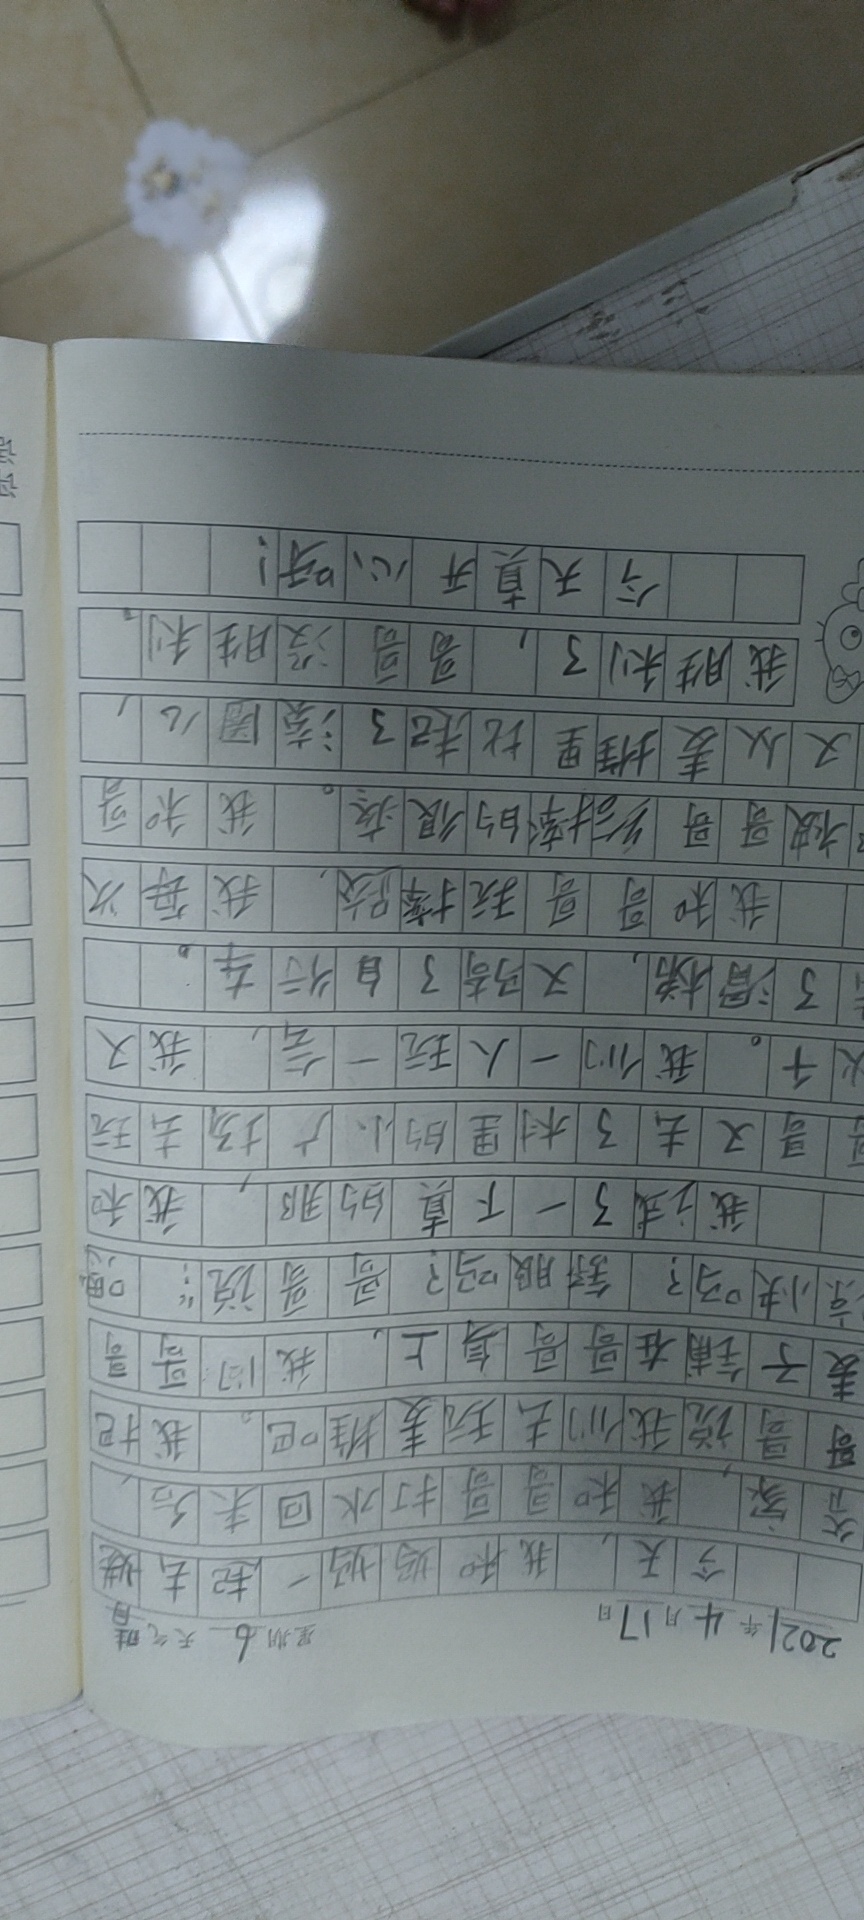 2021年4月17日 星期6 天气晴
今天，我和妈妈一起去姥
爷家，我和哥哥打水回来后，
哥哥说我们去玩麦堆吧。我把
麦子铺在哥哥身上，我问哥哥
凉快吗？舒服吗？哥哥说：“嗯
我试了一下真的耶，我和
哥哥又去了村里的小广场去玩
秋千。我们一人玩一会，我又
了滑梯，又骑了自行车。
我和哥哥玩摔跤，我每次
被哥哥给摔的很疼。我和哥
又从麦堆里比起了滚圈儿，
我胜利了，哥哥没胜利。
今天真开心呀！